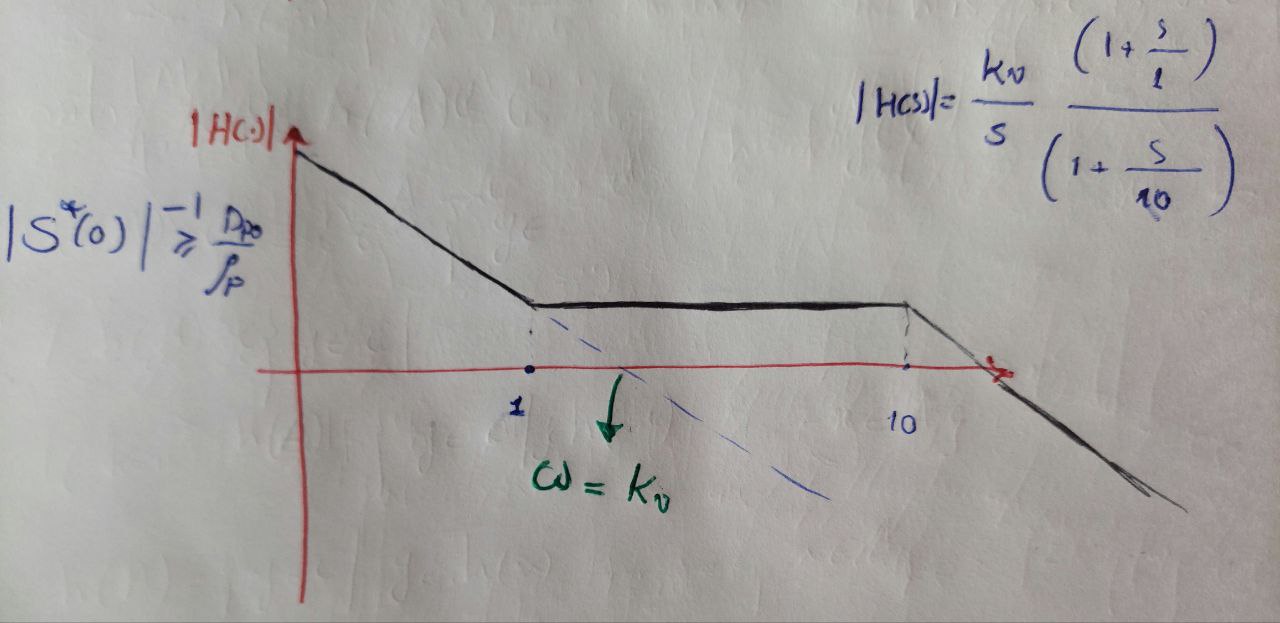 |H(s)| = kv/s (1 + s/1)/(1 + s/10)
|H(·)|
|S*(0)|⁻¹ ≥ Dp0/ρp
1
10
ω = kv